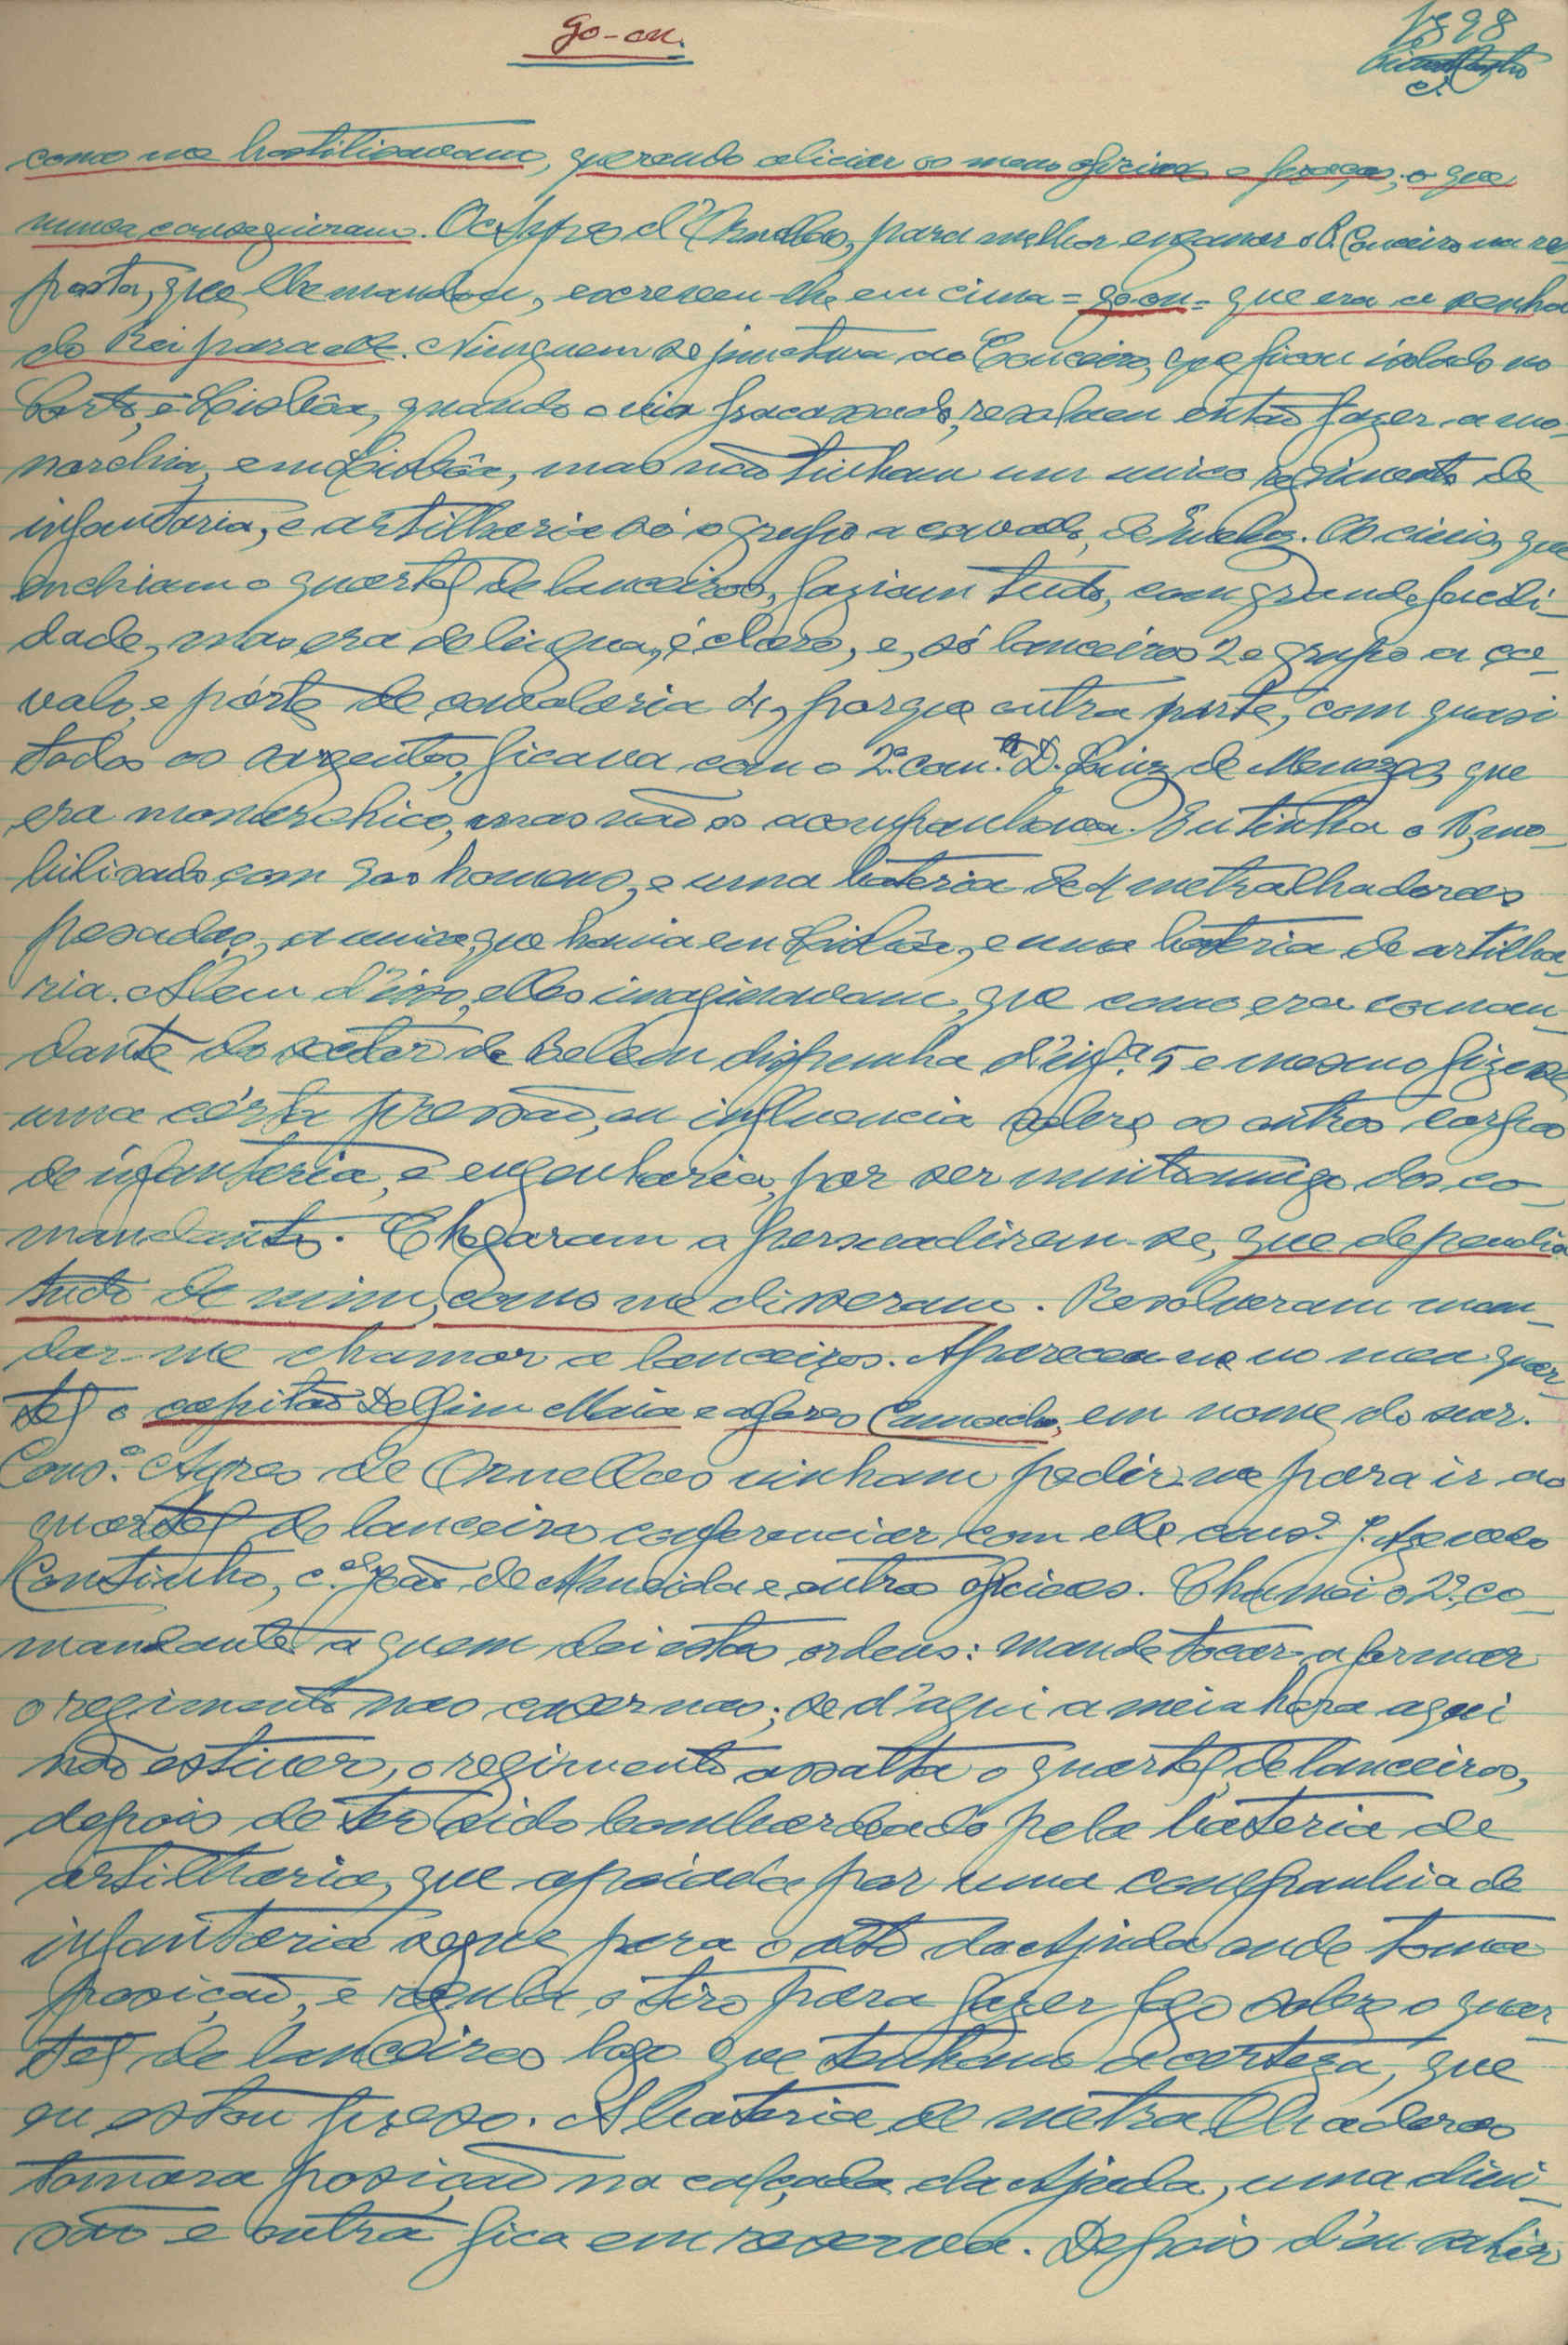 go-on.
1898
como me hostilisavam, querendo aliciar os meus oficiaes e praças, o que
nunca conseguiram. O Ayres d'Ornellas, para melhor enganar o P. Couceiro na res-
posta, que lhe mandou, escreveu-lhe em cima = go-on = que era a senha
do Rei para elle. Ninguem se junctava ao Couceiro, que ficou isolado no
Porto, e Lisbôa, quando o viu fracassado, resolveu então fazer a mo-
narchia, em Lisbôa, mas não tinham um unico regimento de
infantaria, e artilharia só o grupo a cavallo, de Queluz. Os civis, que
enchiam o quartel de lanceiros, faziam tudo, com grande facili-
dade, mas era de lingua, é claro, e, só lanceiros 2 e grupo a ca-
valo, e párte de cavalaria 4, porque outra parte, com quasi
todos os sargentos, ficava com o 2º com.te D. Luiz de Menezes, que
era monarchico, mas não os acompanhava. Eu tinha o 1, mo-
bilisado com 900 homens, e uma bateria de 4 metralhadoras
pesadas, a unica, que havia em Lisbôa, e uma bateria de artilha-
ria. Alem d'isso, elles imaginavam, que como era coman-
dante do sector de Belem dispunha d'inf.ª 5 e mesmo fizesse
uma cérta pressão, ou influencia sobre os outros corpos
de infanteria, e engenharia, por ser muito amigo dos co-
mandantes. Chegaram a persuadirem-se, que dependia
tudo de mim, como me disseram. Resolveram man-
dar-me chamar a lanceiros. Apareceu-me no meu quar-
tel o capitão Delfim Maia e alferes Camacho, em nome do snr.
Cons.º Ayres de Ornellas vinham pedir-me para ir ao
quartel de lanceiros conferenciar com elle cons.º J. Azevedo
Coutinho, c.el João de Almeida e outros oficiaes. Chamei o 2º co-
mandante a quem dei estas ordens: mande tocar a formar
o regimento nas casernas; se d'aqui a meia hora aqui
não estiver, o regimento assalta o quartel de lanceiros,
depois de ter sido bombardeado pela bateria de
artilharia, que apoiada por uma companhia de
infantaria segue para o alto da Ajuda onde toma
posição, e regula o tiro para fazer fogo sobre o quar-
tel de lanceiros logo que tenham a certeza, que
eu estou preso. A bateria de metralhadoras
tomara posição na calçada da Ajuda, uma divi-
são e outra fica em reserva. Depois d'eu sahir